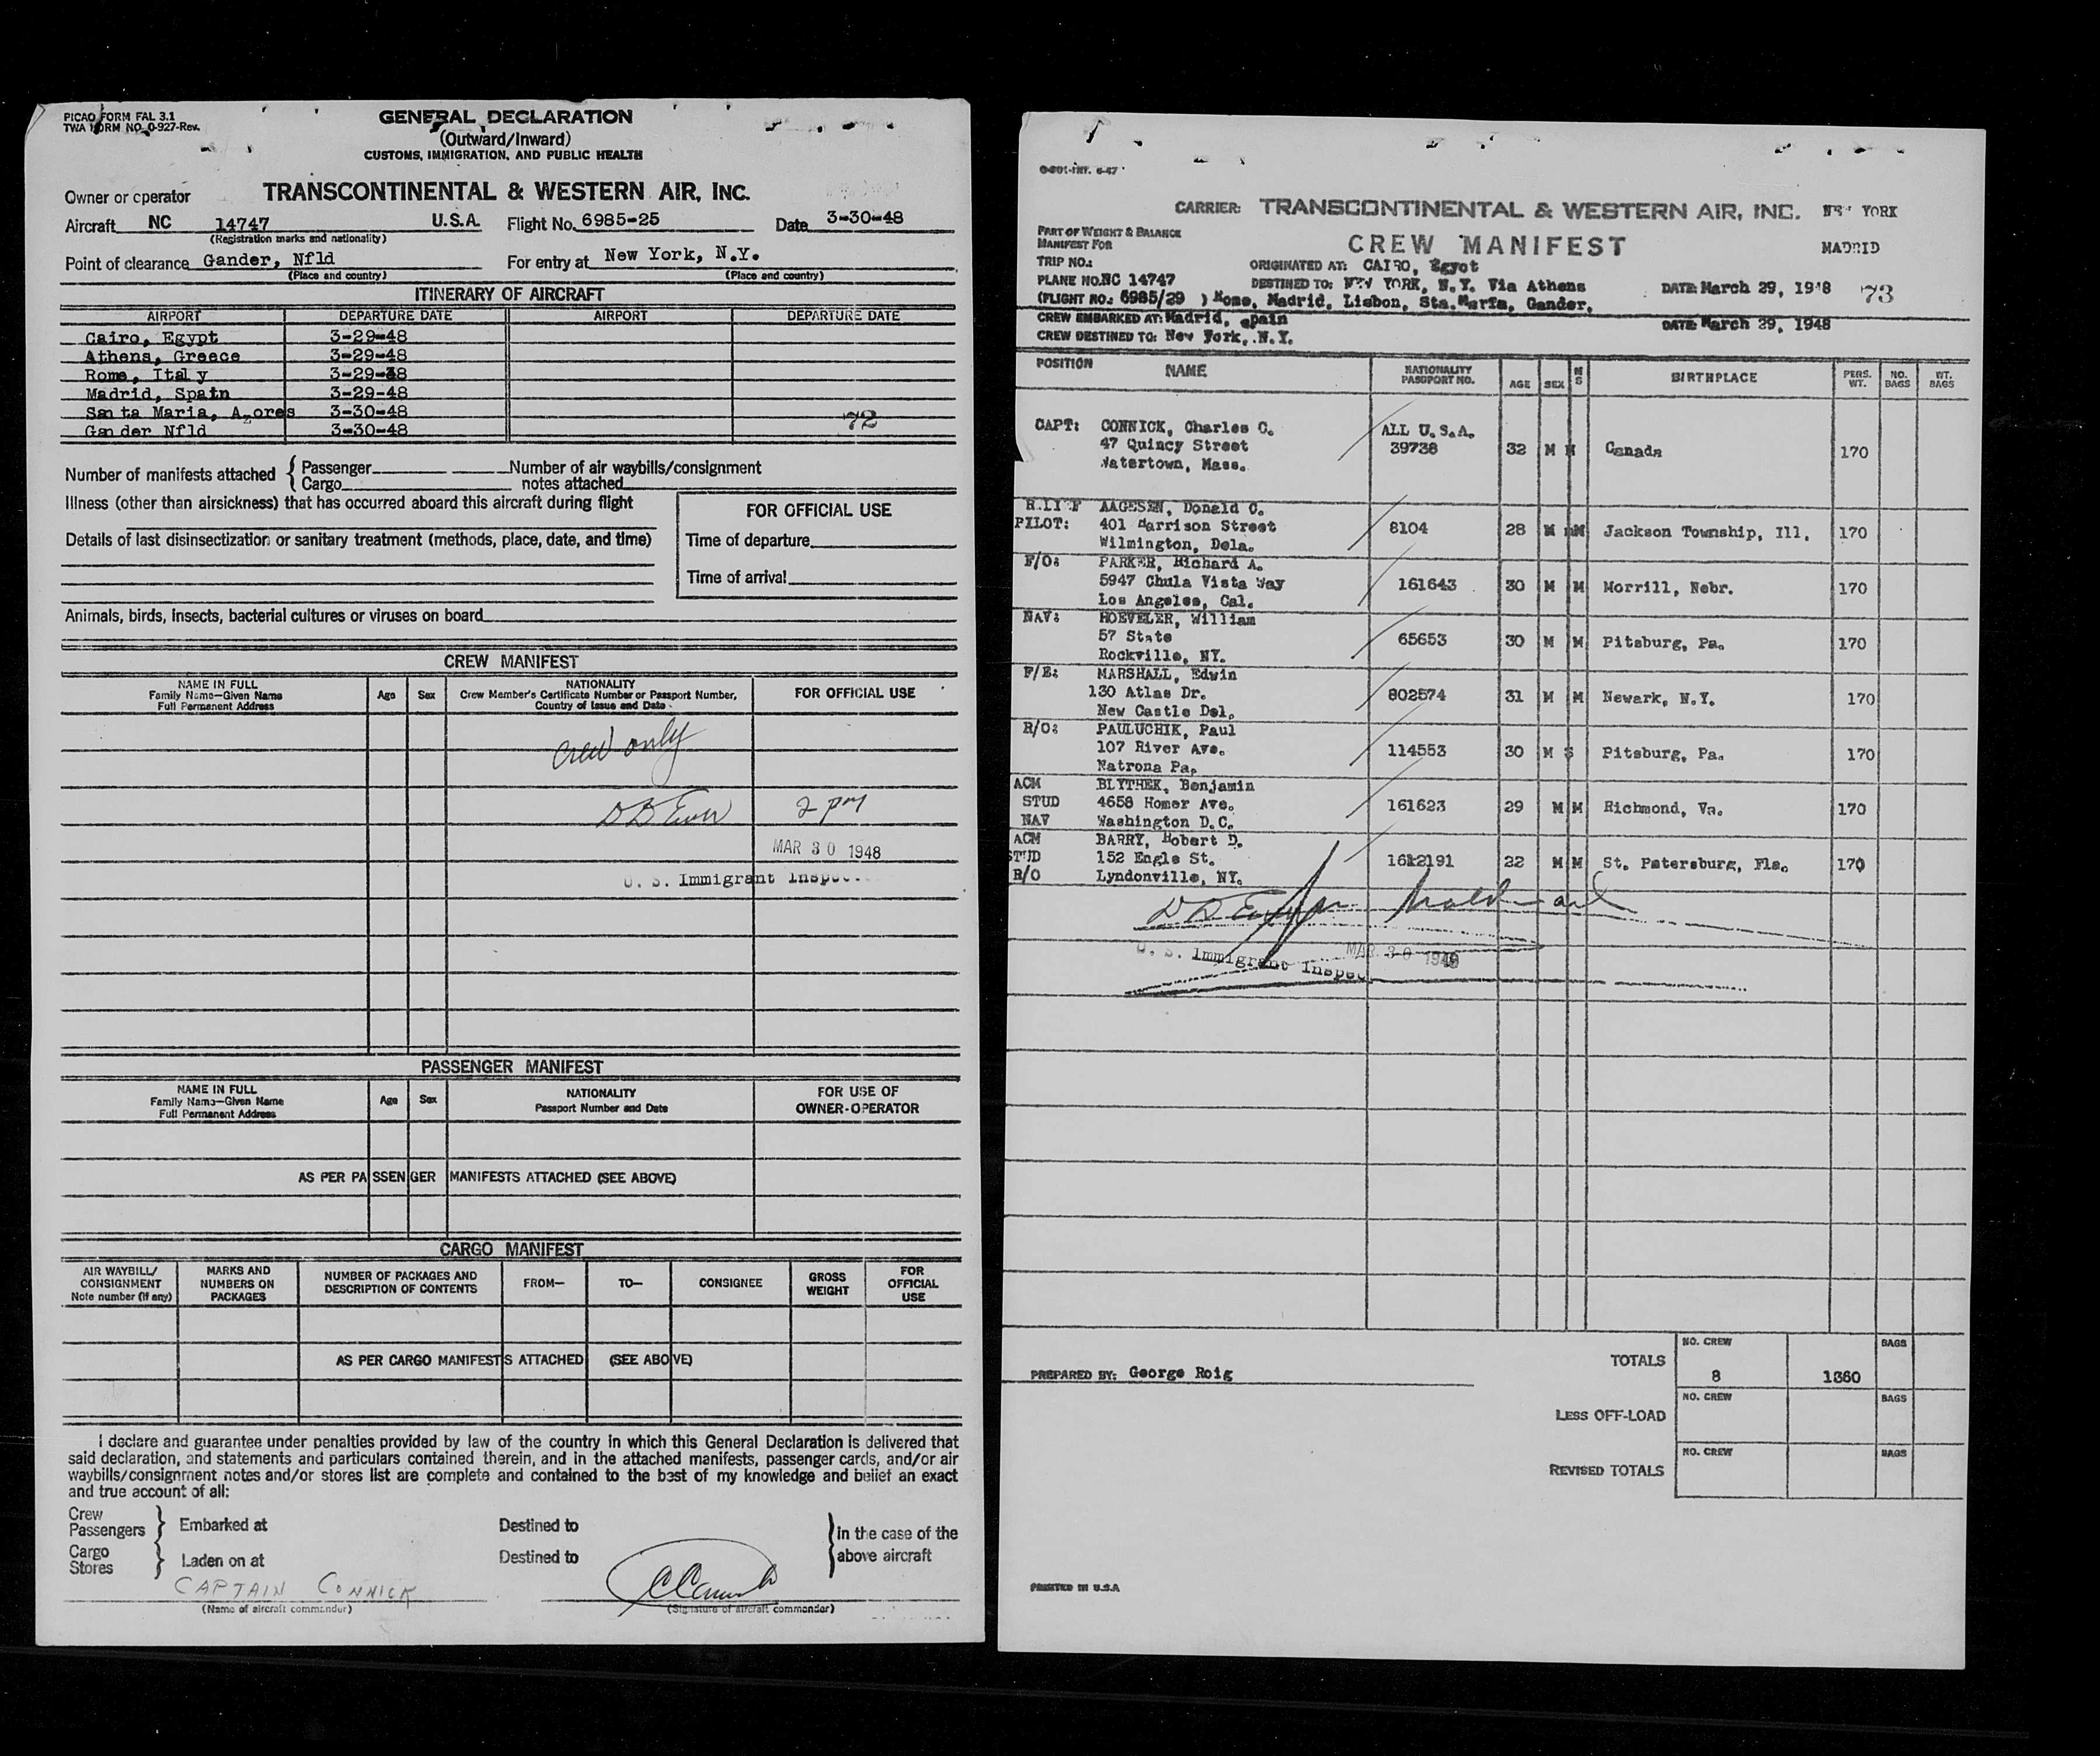 PICAO FORM FAL 3.1
TWA FORM NO. 0-927-Rev.
GENERAL DECLARATION
(Outward/Inward)
CUSTOMS, IMMIGRATION, AND PUBLIC HEALTH
Owner or operator TRANSCONTINENTAL & WESTERN AIR, INC.
Aircraft NC 14747 U.S.A. Flight No. 6985-25 Date 3-30-48
(Registration marks and nationality)
Point of clearance Gander, Nfld For entry at New York, N.Y.
(Place and country) (Place and country)
ITINERARY OF AIRCRAFT
AIRPORT DEPARTURE DATE AIRPORT DEPARTURE DATE
Cairo, Egypt 3-29-48
Athens, Greece 3-29-48
Rome, Italy 3-29-48
Madrid, Spain 3-29-48
Santa Maria, Azores 3-30-48 72
Gander Nfld 3-30-48
Number of manifests attached { Passenger Number of air waybills/consignment
Cargo notes attached
Illness (other than airsickness) that has occurred aboard this aircraft during flight
FOR OFFICIAL USE
Details of last disinsectization or sanitary treatment (methods, place, date, and time)
Time of departure
Time of arrival
Animals, birds, insects, bacterial cultures or viruses on board
CREW MANIFEST
NAME IN FULL
Family Name—Given Name
Full Permanent Address
Age Sex
NATIONALITY
Crew Member's Certificate Number or Passport Number,
Country of Issue and Date
FOR OFFICIAL USE
Crew only
2 pm
MAR 30 1948
U. S. Immigrant Inspec
PASSENGER MANIFEST
NAME IN FULL
Family Name—Given Name
Full Permanent Address
Age Sex
NATIONALITY
Passport Number and Date
FOR USE OF
OWNER-OPERATOR
AS PER PASSENGER MANIFESTS ATTACHED (SEE ABOVE)
CARGO MANIFEST
AIR WAYBILL/
CONSIGNMENT
Note number (if any)
MARKS AND
NUMBERS ON
PACKAGES
NUMBER OF PACKAGES AND
DESCRIPTION OF CONTENTS
FROM— TO— CONSIGNEE
GROSS
WEIGHT
FOR
OFFICIAL
USE
AS PER CARGO MANIFESTS ATTACHED (SEE ABOVE)
I declare and guarantee under penalties provided by law of the country in which this General Declaration is delivered that
said declaration, and statements and particulars contained therein, and in the attached manifests, passenger cards, and/or air
waybills/consignment notes and/or stores list are complete and contained to the best of my knowledge and belief an exact
and true account of all:
Crew
Passengers } Embarked at Destined to
Cargo
Stores } Laden on at Destined to
in the case of the
above aircraft
CAPTAIN CONNICK
(Name of aircraft commander) (Signature of aircraft commander)
CARRIER: TRANSCONTINENTAL & WESTERN AIR, INC. NEW YORK
PART OF WEIGHT & BALANCE
MANIFEST FOR
CREW MANIFEST MADRID
TRIP NO.: ORIGINATED AT: CAIRO, Egypt
PLANE NO. NC 14747 DESTINED TO: NEW YORK, N.Y. Via Athens DATE: March 29, 1948 73
(FLIGHT NO.: 6985/29 ) Rome, Madrid, Lisbon, Sta. Maria, Gander,
CREW EMBARKED AT: Madrid, Spain DATE: March 29, 1948
CREW DESTINED TO: New York, N.Y.
POSITION NAME NATIONALITY PASSPORT NO. AGE SEX M S BIRTHPLACE PERS. WT. NO. BAGS WT. BAGS
CAPT: CONNICK, Charles C. ALL U.S.A.
47 Quincy Street 39738 32 M M Canada 170
Watertown, Mass.
RELIEF AAGESEN, Donald C.
PILOT: 401 Harrison Street 8104 28 M M Jackson Township, Ill. 170
Wilmington, Dela.
F/O: PARKER, Richard A.
5947 Chula Vista Way 161643 30 M M Morrill, Nebr. 170
Los Angeles, Cal.
NAV: HOEVELER, William
57 State 65653 30 M M Pitsburg, Pa. 170
Rockville, NY.
F/E: MARSHALL, Edwin
130 Atlas Dr. 802574 31 M M Newark, N.Y. 170
New Castle Del.
R/O: PAULUCHIK, Paul
107 River Ave. 114553 30 M S Pitsburg, Pa. 170
Natrona Pa.
ACM BLYTHEK, Benjamin
STUD 4658 Homer Ave. 161623 29 M M Richmond, Va. 170
NAV Washington D.C.
ACM BARRY, Robert D.
STUD 152 Engle St. 1612191 22 M M St. Petersburg, Fla. 170
R/O Lyndonville, NY.
U. S. Immigrant Inspec
MAR 30 1948
TOTALS NO. CREW BAGS
8 1360
PREPARED BY: George Roig
LESS OFF-LOAD NO. CREW BAGS
REVISED TOTALS NO. CREW BAGS
PRINTED IN U.S.A